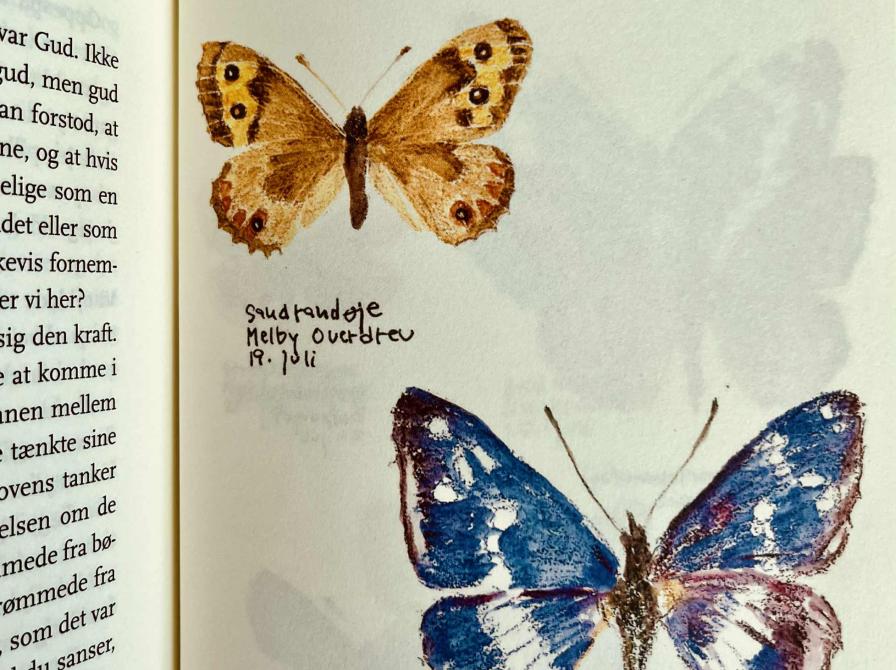 var Gud. Ikke
gud, men gud
an forstod, at
ne, og at hvis
elige som en
det eller som
kevis fornem-
er vi her?
sig den kraft.
e at komme i
nen mellem
e tænkte sine
ovens tanker
elsen om de
mmede fra bø-
rømmede fra
, som det var
du sanser,
Sandrandøje
Melby Overdrev
19. juli